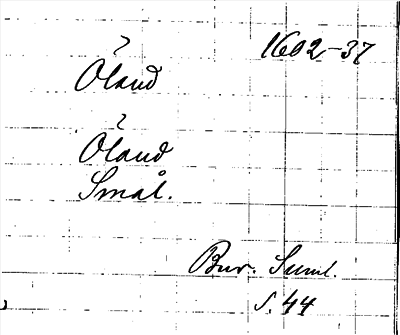 1602-37
?
Öland
?
Öland
Smål.
Bur. Suml.
s. 44